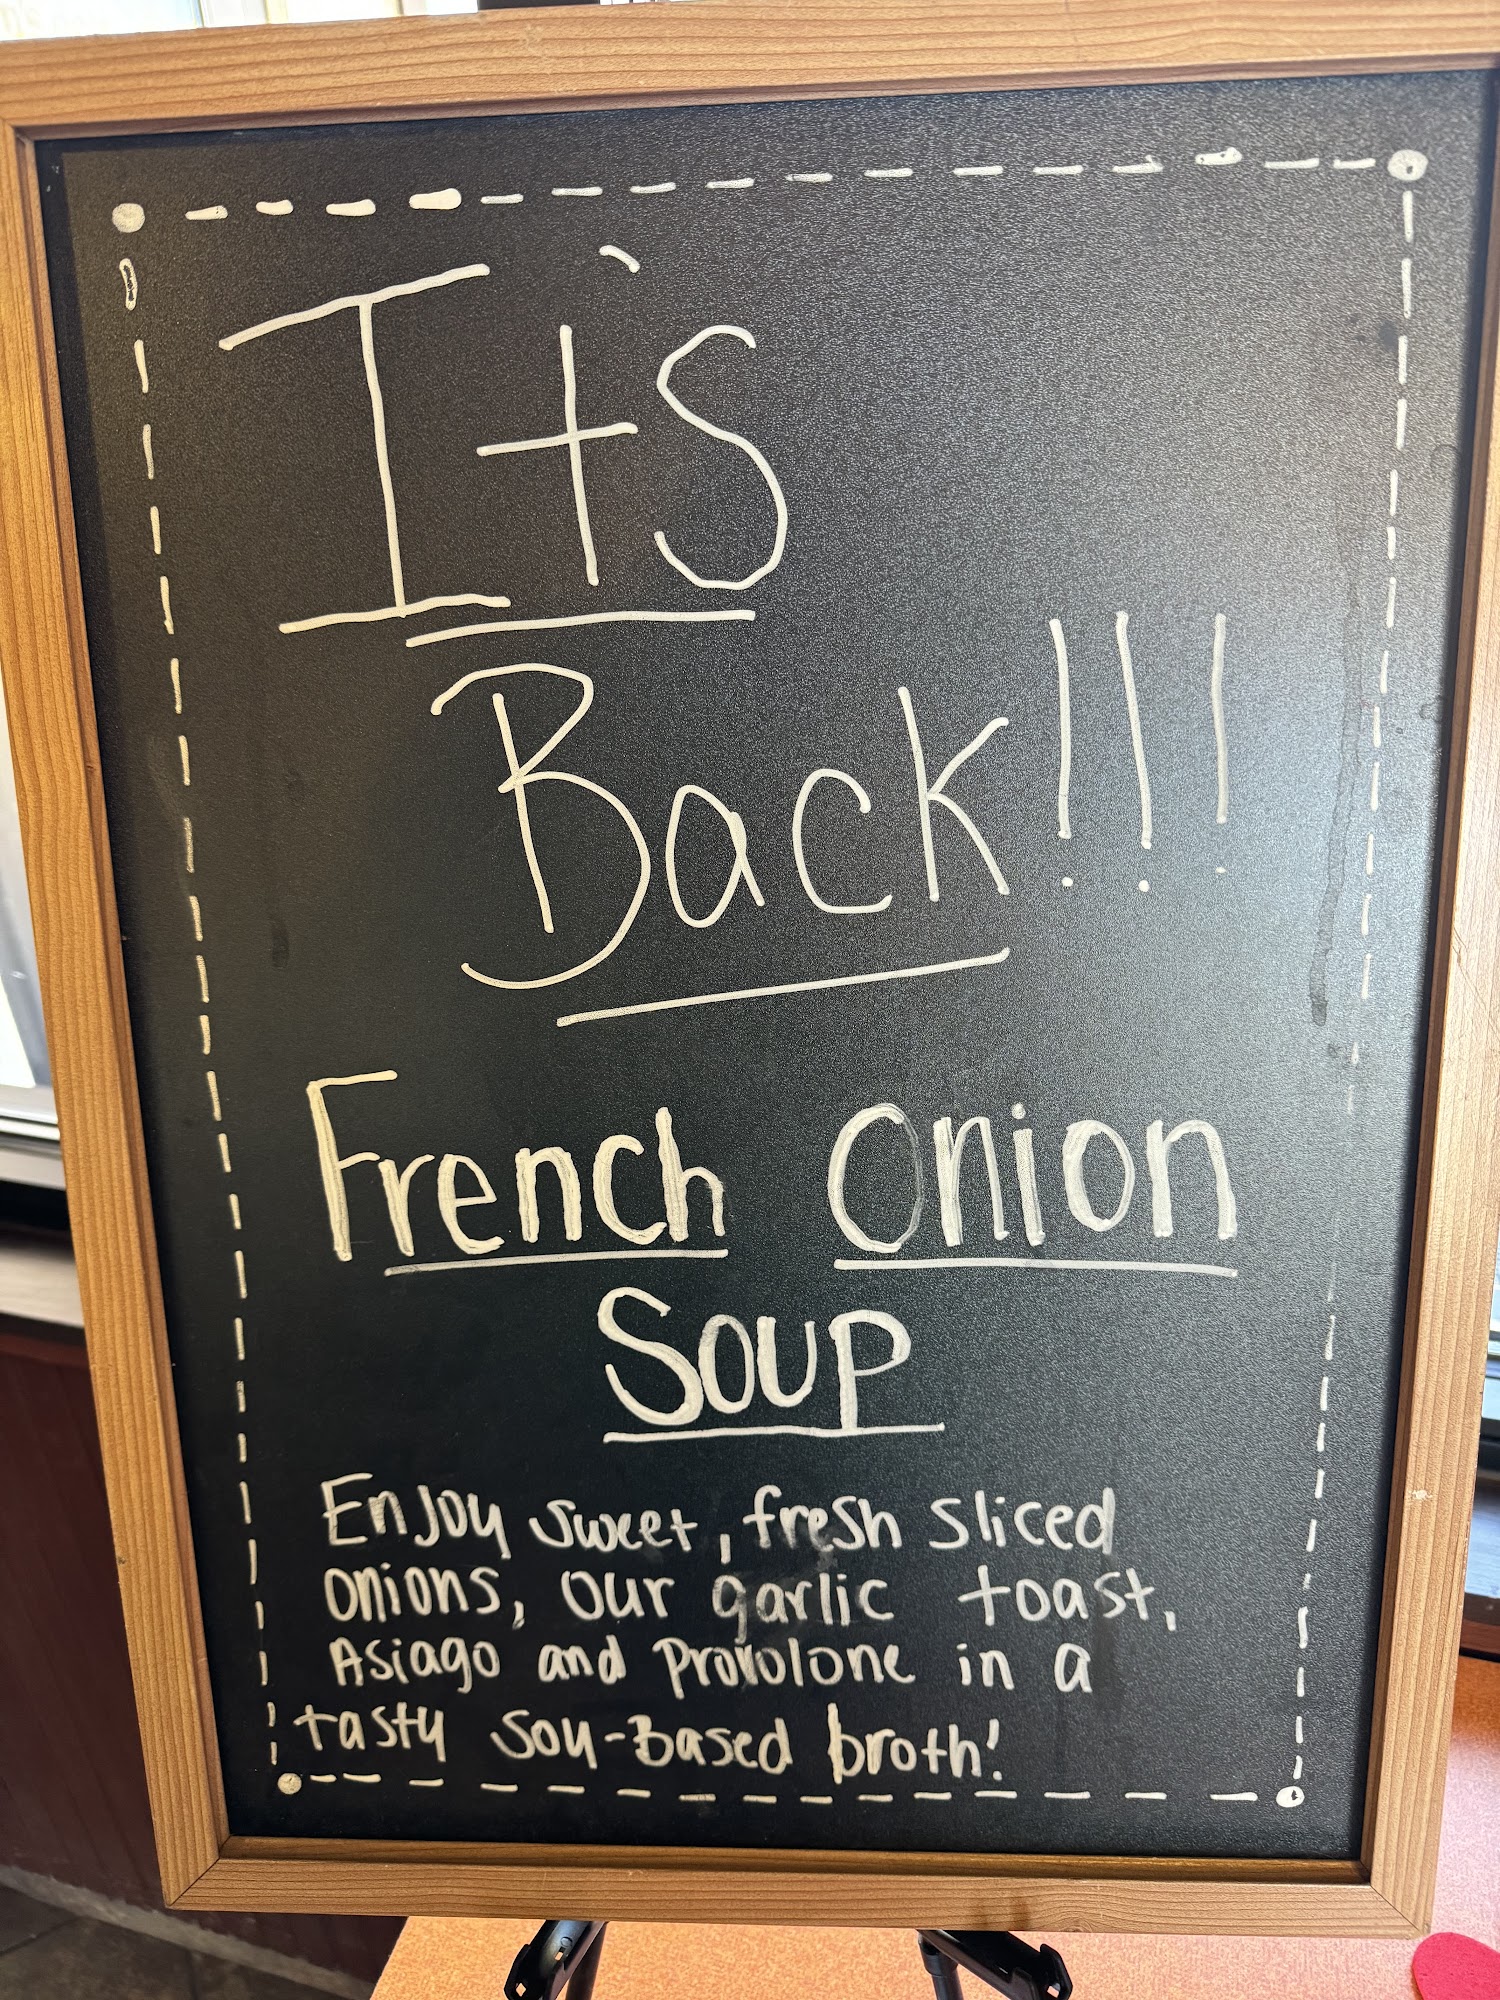 It's
Back!!!
French Onion
Soup
Enjoy sweet, fresh sliced
onions, our garlic toast,
Asiago and Provolone in a
tasty Soy-Based broth!